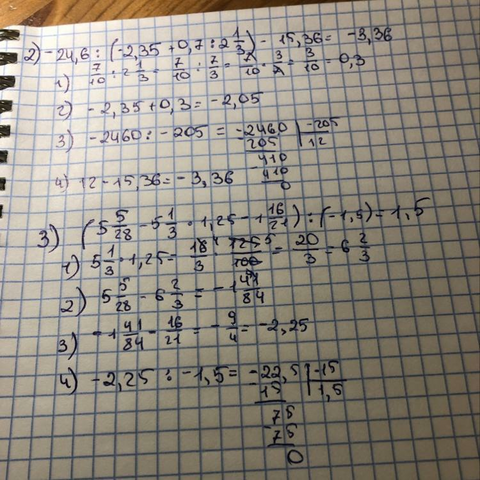 2) -24,6 : (-2,35 + 0,7 : 2 1/3) - 15,36 = -3,36
1) 7/10 : 2 1/3 = 7/10 : 7/3 = 7/10 · 3/7 = 3/10 = 0,3
2) -2,35 + 0,3 = -2,05
3) -2460 : -205 = -2460 | -205
205 | 12
-410
410
0
4) 12 - 15,36 = -3,36
3) (5 5/28 - 5 1/3 · 1,25 - 1 16/21) : (-1,5) = 1,5
1) 5 1/3 · 1,25 = 16/3 · 125/100 = 20/3 = 6 2/3
2) 5 5/28 - 6 2/3 = -1 41/84
3) -1 41/84 - 16/21 = -9/4 = -2,25
4) -2,25 : -1,5 = -22,5 | -15
15 | 1,5
75
-75
0